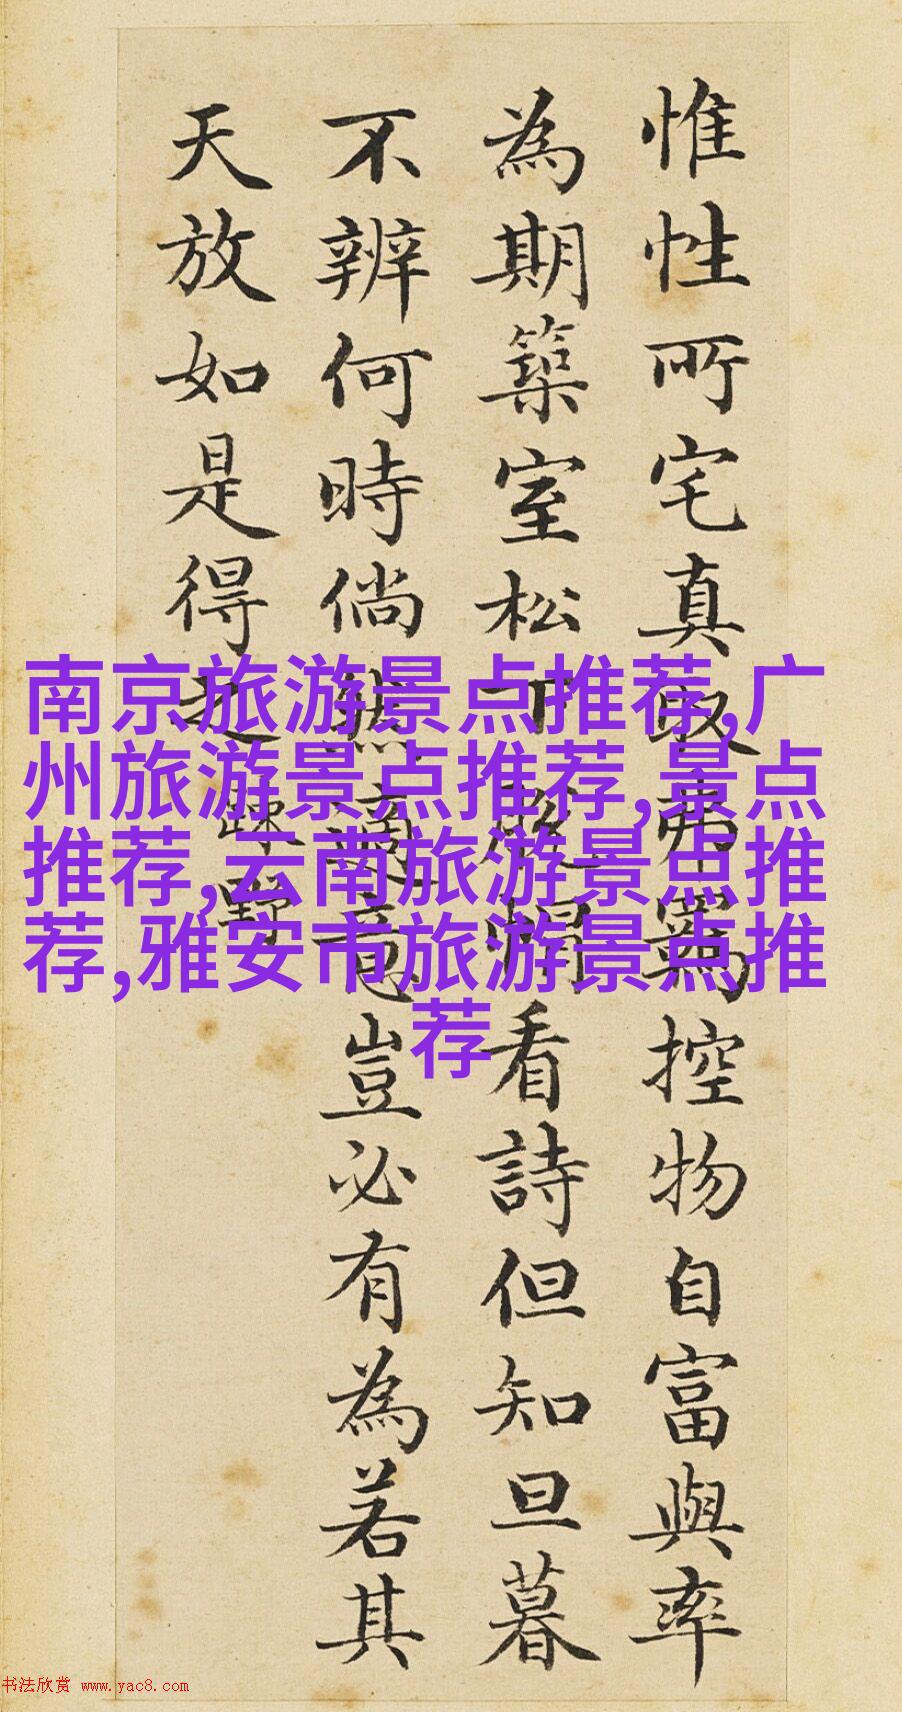 惟性所宅真取弗羈控物自富與率
為期築室松下脫帽看詩但知旦暮
不辨何時倘然適意豈必有為若其
天放如是得之
疎野
南京旅游景点推荐,广
州旅游景点推荐,景点
推荐,云南旅游景点推
荐,雅安市旅游景点推
荐
书法欣赏 www.yac8.com